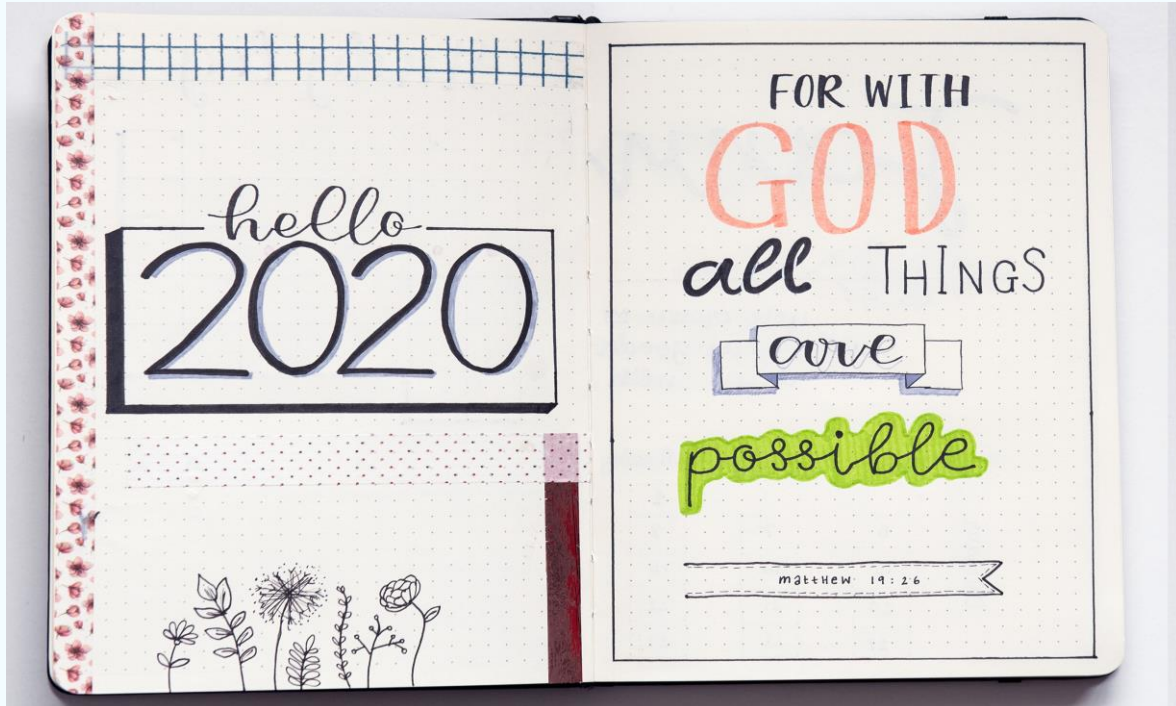 hello
2020
FOR WITH
GOD
all THINGS
are
possible
matthew 19:26